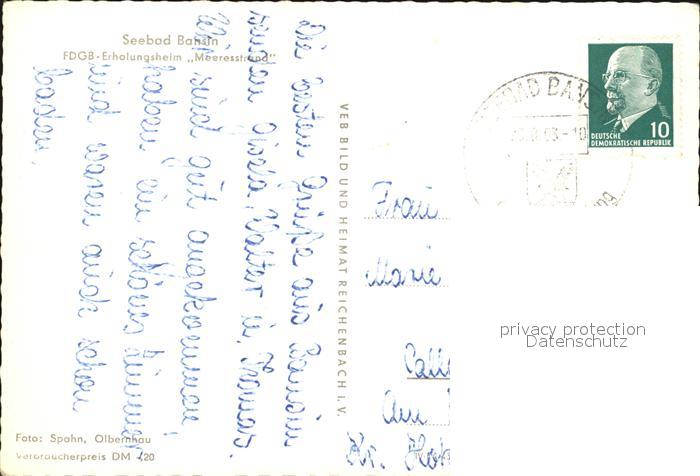 Seebad Bansin
FDGB-Erholungsheim „Meeresstrand"
Die besten Grüße aus Bansin
senden Gisela, Walter u. Thomas.
Wir sind gut angekommen,
haben ein schönes Zimmer,
und waren auch schon
baden.
VEB BILD UND HEIMAT REICHENBACH I. V.
SEEBAD BANSIN
DEUTSCHE
DEMOKRATISCHE REPUBLIK
10
Frau
Marie
Am
Kr.
privacy protection
Datenschutz
Foto: Spahn, Olbernhau
Verbraucherpreis DM -,20